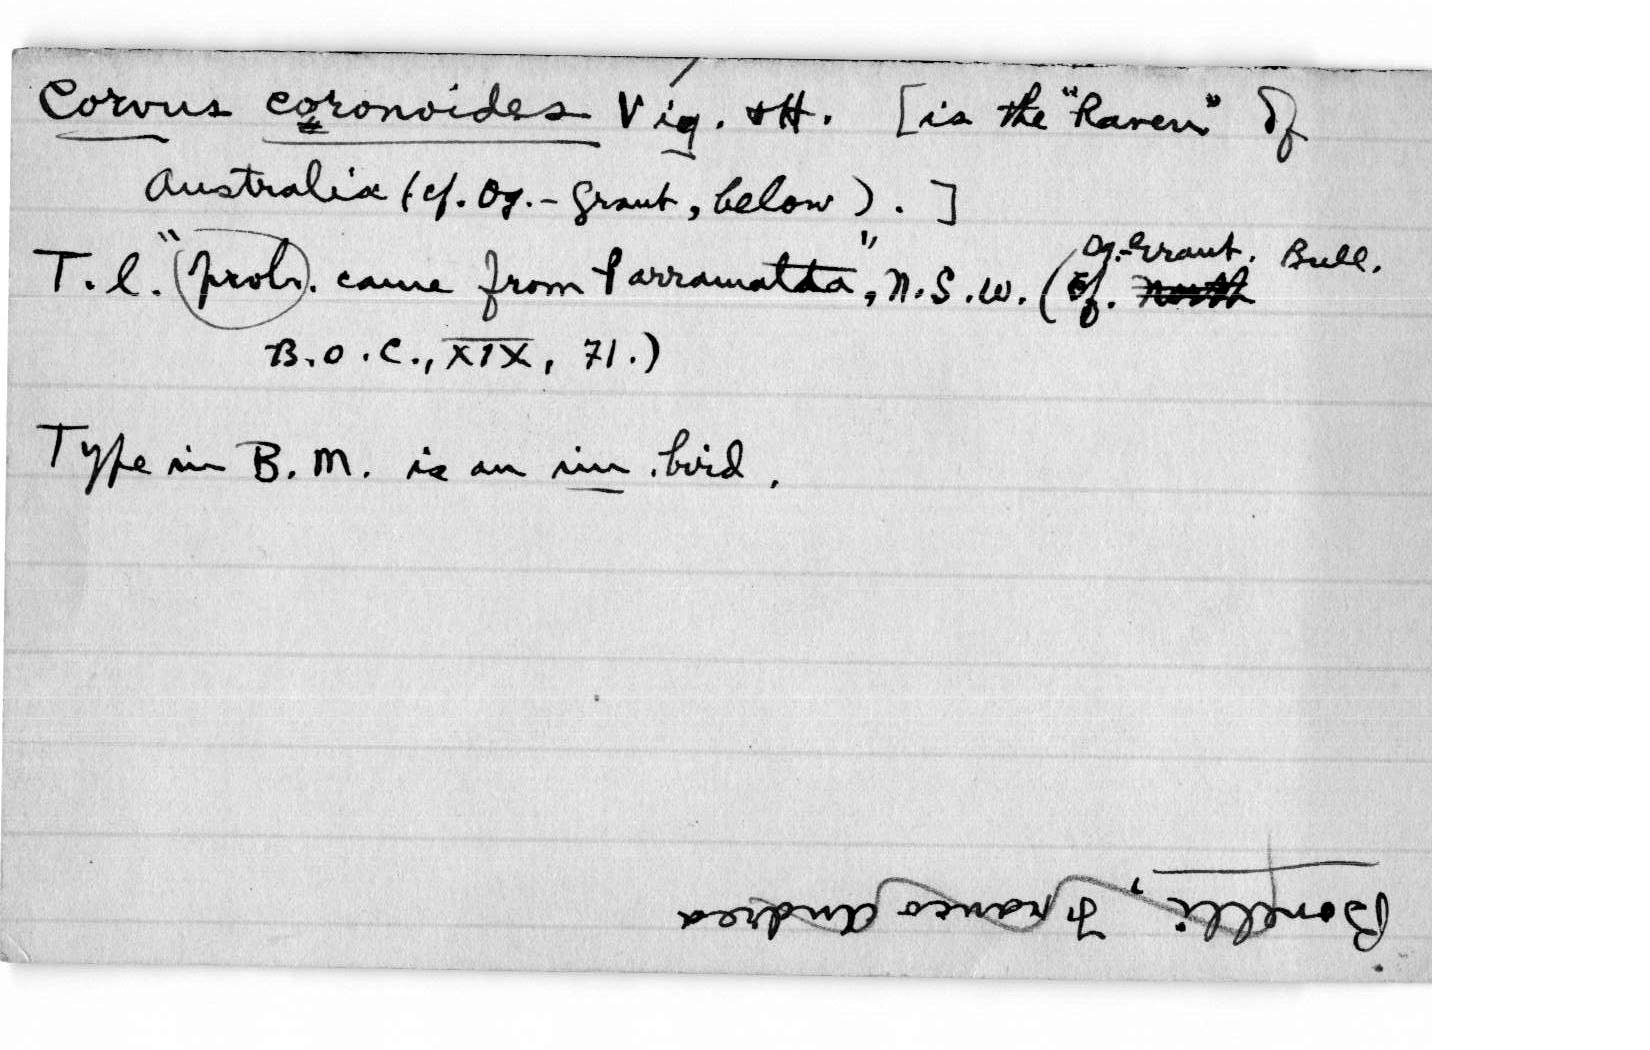 Corvus coronoides Vig. & H. [is the "Raven" of
Australia (cf. Og.-Grant, below). ]
T.l. "prob. came from Parramatta", N.S.W. (cf. North Og.-Grant. Bull.
B.O.C., XIX, 71.)
Type in B.M. is an im. bird.
Bonelli, Franco Andrea